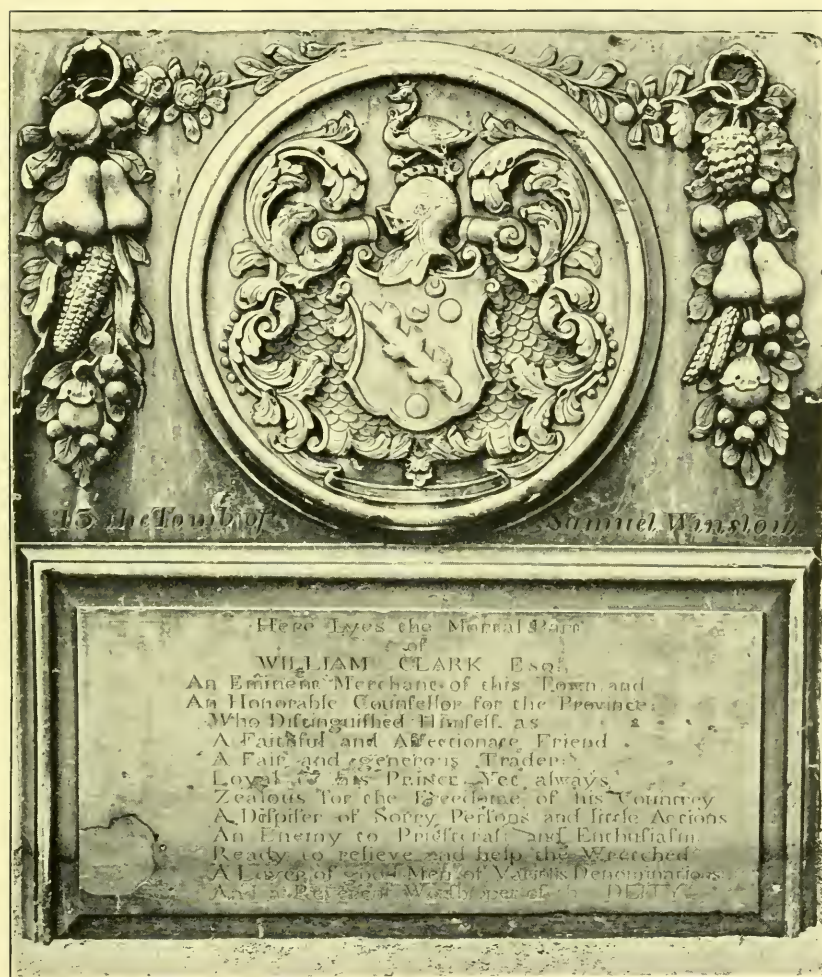 is the Tomb of Samuel Winslow
Here Lyes the Mortal Part
of
WILLIAM CLARK Esqr.
An Eminent Merchant of this Town, and
An Honorable Counſellor for the Province:
Who Diſtinguiſhed Himſelf as
A Faithful and Affectionate Friend
A Fair and generous Trader
Loyal to his Prince Yet always
Zealous for the Freedome of his Countrey
A Deſpiſer of Sorry Perſons and little Actions
An Enemy to Prieſtcraft and Enthuſiaſm
Ready to relieve and help the Wretched
A Lover of good Men of Various Denominations
And a Reverent Worſhiper of DEITY